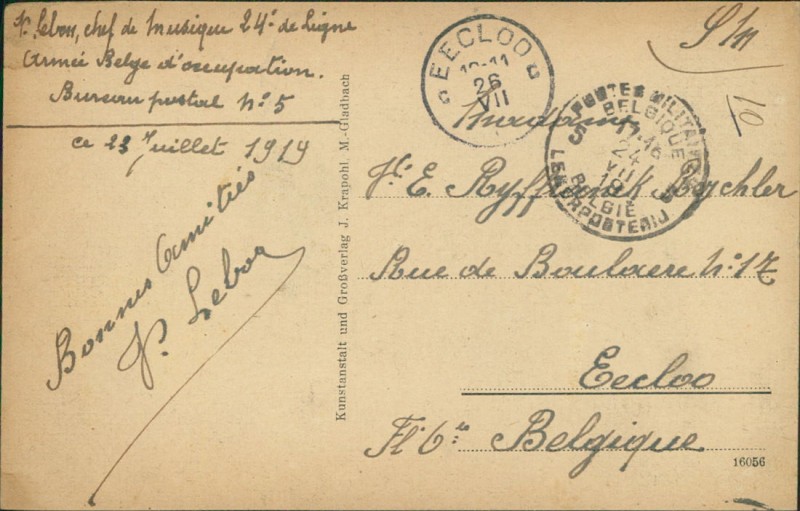 P. Lebon, chef de musique 24e de Ligne
Armée Belge d'occupation.
Bureau postal No 5
ce 23 Juillet 1919
Bonnes Amitiés
P. Lebon
Kunstanstalt und Großverlag J. Krapohl. M.-Gladbach
EECLOO
10-11
26
VII
POSTES MILITAIRES
BELGIQUE
5 5
17-18
24
VII
19
BELGIE
LEGERPOSTERIJ
10
Madame
E. Ryffranck
Rue de Boulaere No 17
Eecloo
Fl. Ole
Belgique
16056